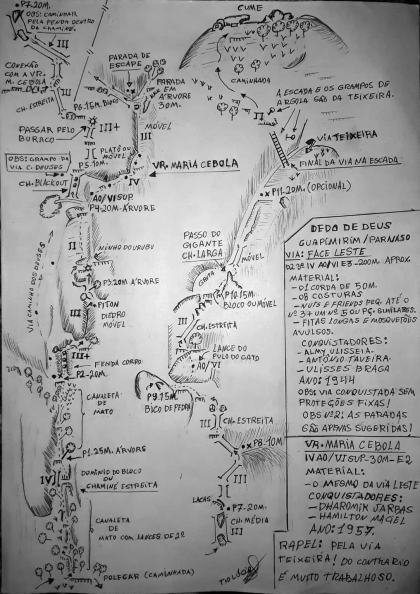 P7-20M.
OBS: CAMINHAR
PELA FENDA DENTRO
DA CHAMINÉ.
III
CONEXÃO
COM A VR.
M. CEBOLA
CH. ESTREITA
III
P6.15M. BLOCO
PARADA DE
ESCAPE
PARADA
EM
ÁRVORE
30M.
III
MÓVEL
PASSAR PELO
BURACO
III+
PLATÔ OU
MÓVEL
P5-10M.
OBS: GRAMPO DA
VIA C. DEUSES
VR. MARIA CEBOLA
IV
CH. BLACKOUT
A0/VISUP.
P4-20M. ÁRVORE
II
NINHO D URUBU
P3.20M ÁRVORE
PITON
DIEDRO
MÓVEL
III
VIA CAMINHO DOS DEUSES
III+
FENDA CORPO
P2-20M.
CANALETA
DE MATO
P1.25M. ÁRVORE
IV
DOMÍNIO DO BLOCO
OU
CHAMINÉ ESTREITA
CANALETA
DE
MATO COM LANCES DE 2º
POLEGAR (CAMINHADA)
CUME
CAMINHADA
A ESCADA E OS GRAMPOS DE
ARGOLA SÃO DA TEIXEIRA.
II
VIA TEIXEIRA
FINAL DA VIA NA ESCADA
P11-20M. (OPCIONAL)
PASSO DO
GIGANTE
CH. LARGA
MÓVEL
GRUTA
P10.15M.
BLOCO OU MÓVEL
III
CH. ESTREITA
LANCE DO
PULO DO GATO
A0/VI
P9.15M.
BICO DE PEDRA
CH. ESTREITA
III
P8-10M
III
LACAS
P7-20M.
CH. MÉDIA
III
DEDO DE DEUS
GUAPIMIRIM/PARNASO
VIA: FACE LESTE
D2 3º IV A0/VI E3-200M. APROX
MATERIAL:
- 01 CORDA DE 50M.
- 08 COSTURAS
- NUTS E FRIENDS PEQ. ATÉ O
- FITAS LONGAS E MOSQUETÕES
AVULSOS.
CONQUISTADORES:
- ALMY ULISSEIA.
- ANTÔNIO TAVEIRA.
- ULISSES BRAGA
ANO: 1944
OBS: VIA CONQUISTADA SEM
PROTEÇÕES FIXAS!
OBS Nº2: AS PARADAS
SÃO APENAS SUGERIDAS!
VR. MARIA CEBOLA
IV A0/VISUP-30M-E2
MATERIAL:
- O MESMO DA VIA LESTE
CONQUISTADORES:
- DHAROMIK JARBAS
- HAMILTON MACIEL
ANO: 1957.
RAPEL: PELA VIA
TEIXEIRA! DO CONTRÁRIO
É MUITO TRABALHOSO.